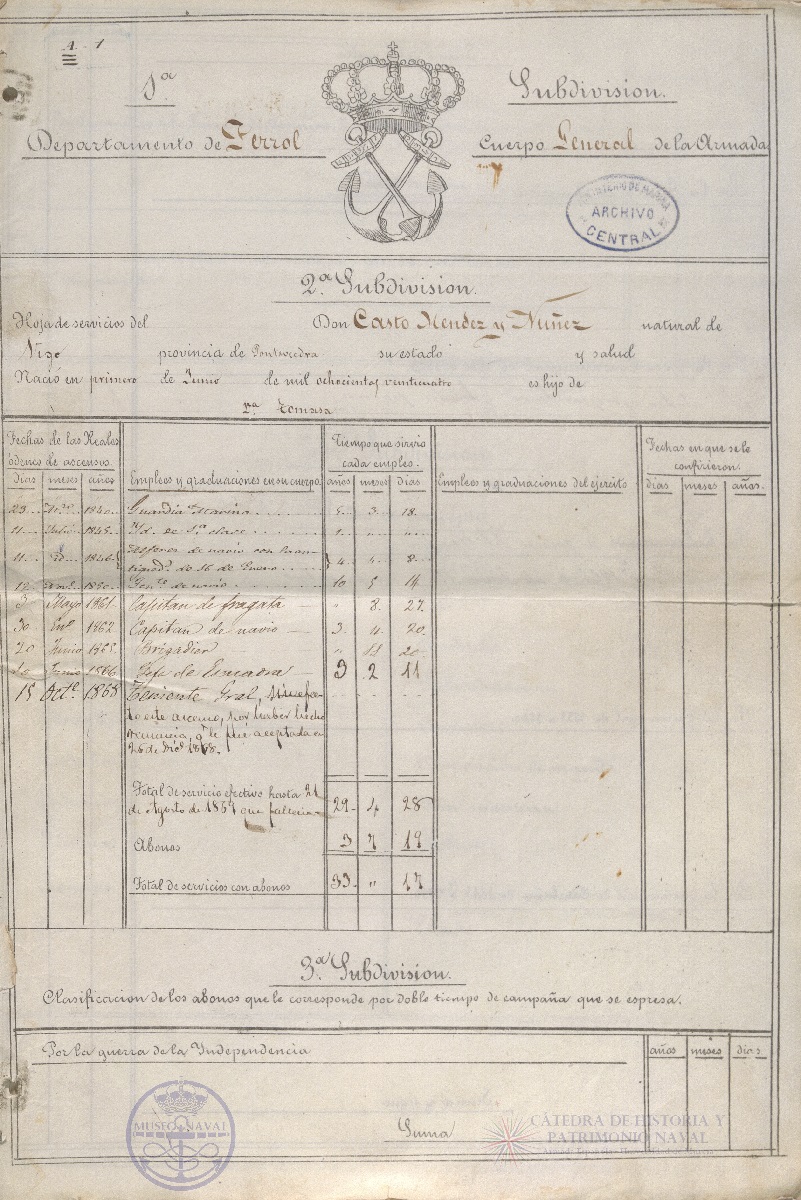 A. 1
1ª Subdivision.
Departamento de Ferrol Cuerpo General de la Armada
MINISTERIO DE MARINA
ARCHIVO
CENTRAL
2ª Subdivision.
Hoja de servicios del Don Casto Mendez y Nuñez natural de
Vigo provincia de Pontevedra su estado y salud
Nació en primero de Junio de mil ochocientos veinticuatro es hijo de
Dª Tomasa
Fechas de las Reales órdenes de ascensos. Tiempo que sirvió cada empleo. Fechas en que se le confirieron.
días meses años Empleos y graduaciones en su cuerpo. años meses días Empleos y graduaciones del ejército días meses años.
1840 Guardia Marina 5 3 18
11 Julio 1845 Yd. de 1ª clase 1 " "
11 Yd. 1846 Alferez de navio con
de 16 de Enero 4 4 8
12 1850 Tente de navio 10 5 14
3 Mayo 1861 Capitan de fragata " 8 27
30 Enº 1862 Capitan de navio 3 4 20
20 Junio 1865 Brigadier " 11 20
10 Junio 1866 Jefe de Escuadra 3 2 11
15 Octe 1868 Teniente Gral, sin efec-
to este ascenso, por haber hecho
renuncia, qe le fué aceptada en
26 de Dice 1868.
Total de servicio efectivo hasta 21
de Agosto de 1869 que falleció 29 4 28
Abonos 3 7 19
Total de servicios con abonos 33 " 17
3ª Subdivision.
Clasificacion de los abonos que le corresponde por doble tiempo de campaña que se espresa.
Por la guerra de la Independencia años meses días
Suma
MUSEO NAVAL
CÁTEDRA DE HISTORIA Y
PATRIMONIO NAVAL